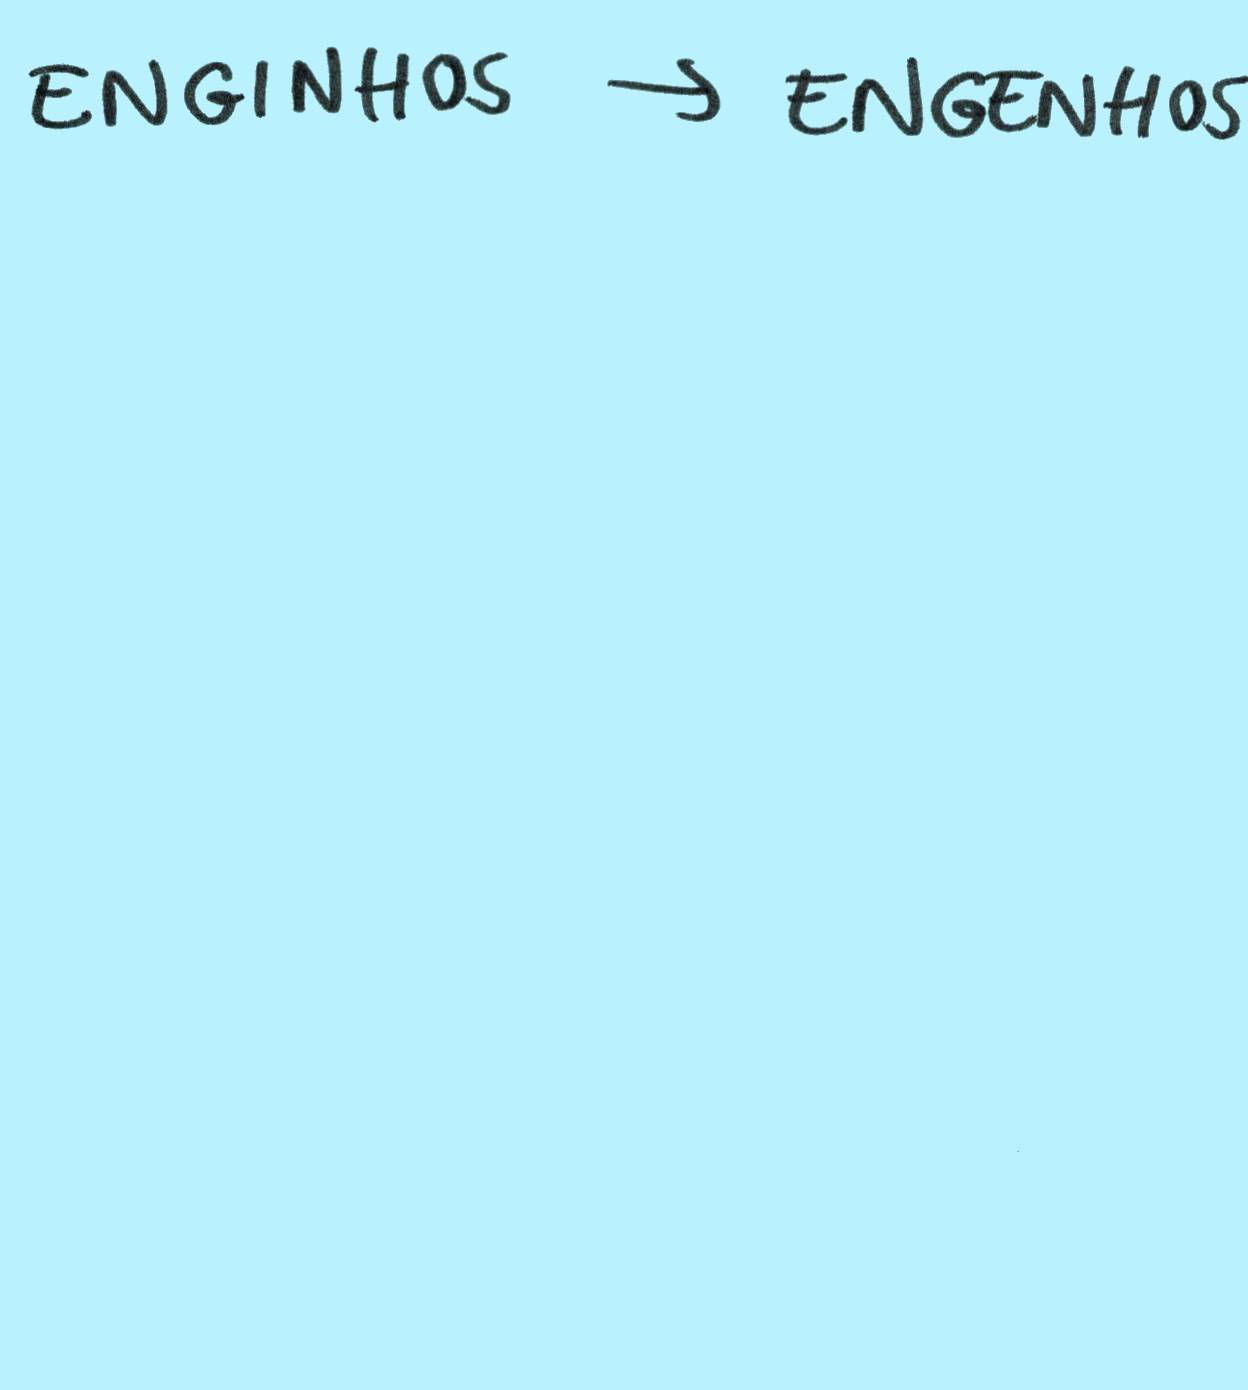 ENGINHOS → ENGENHOS